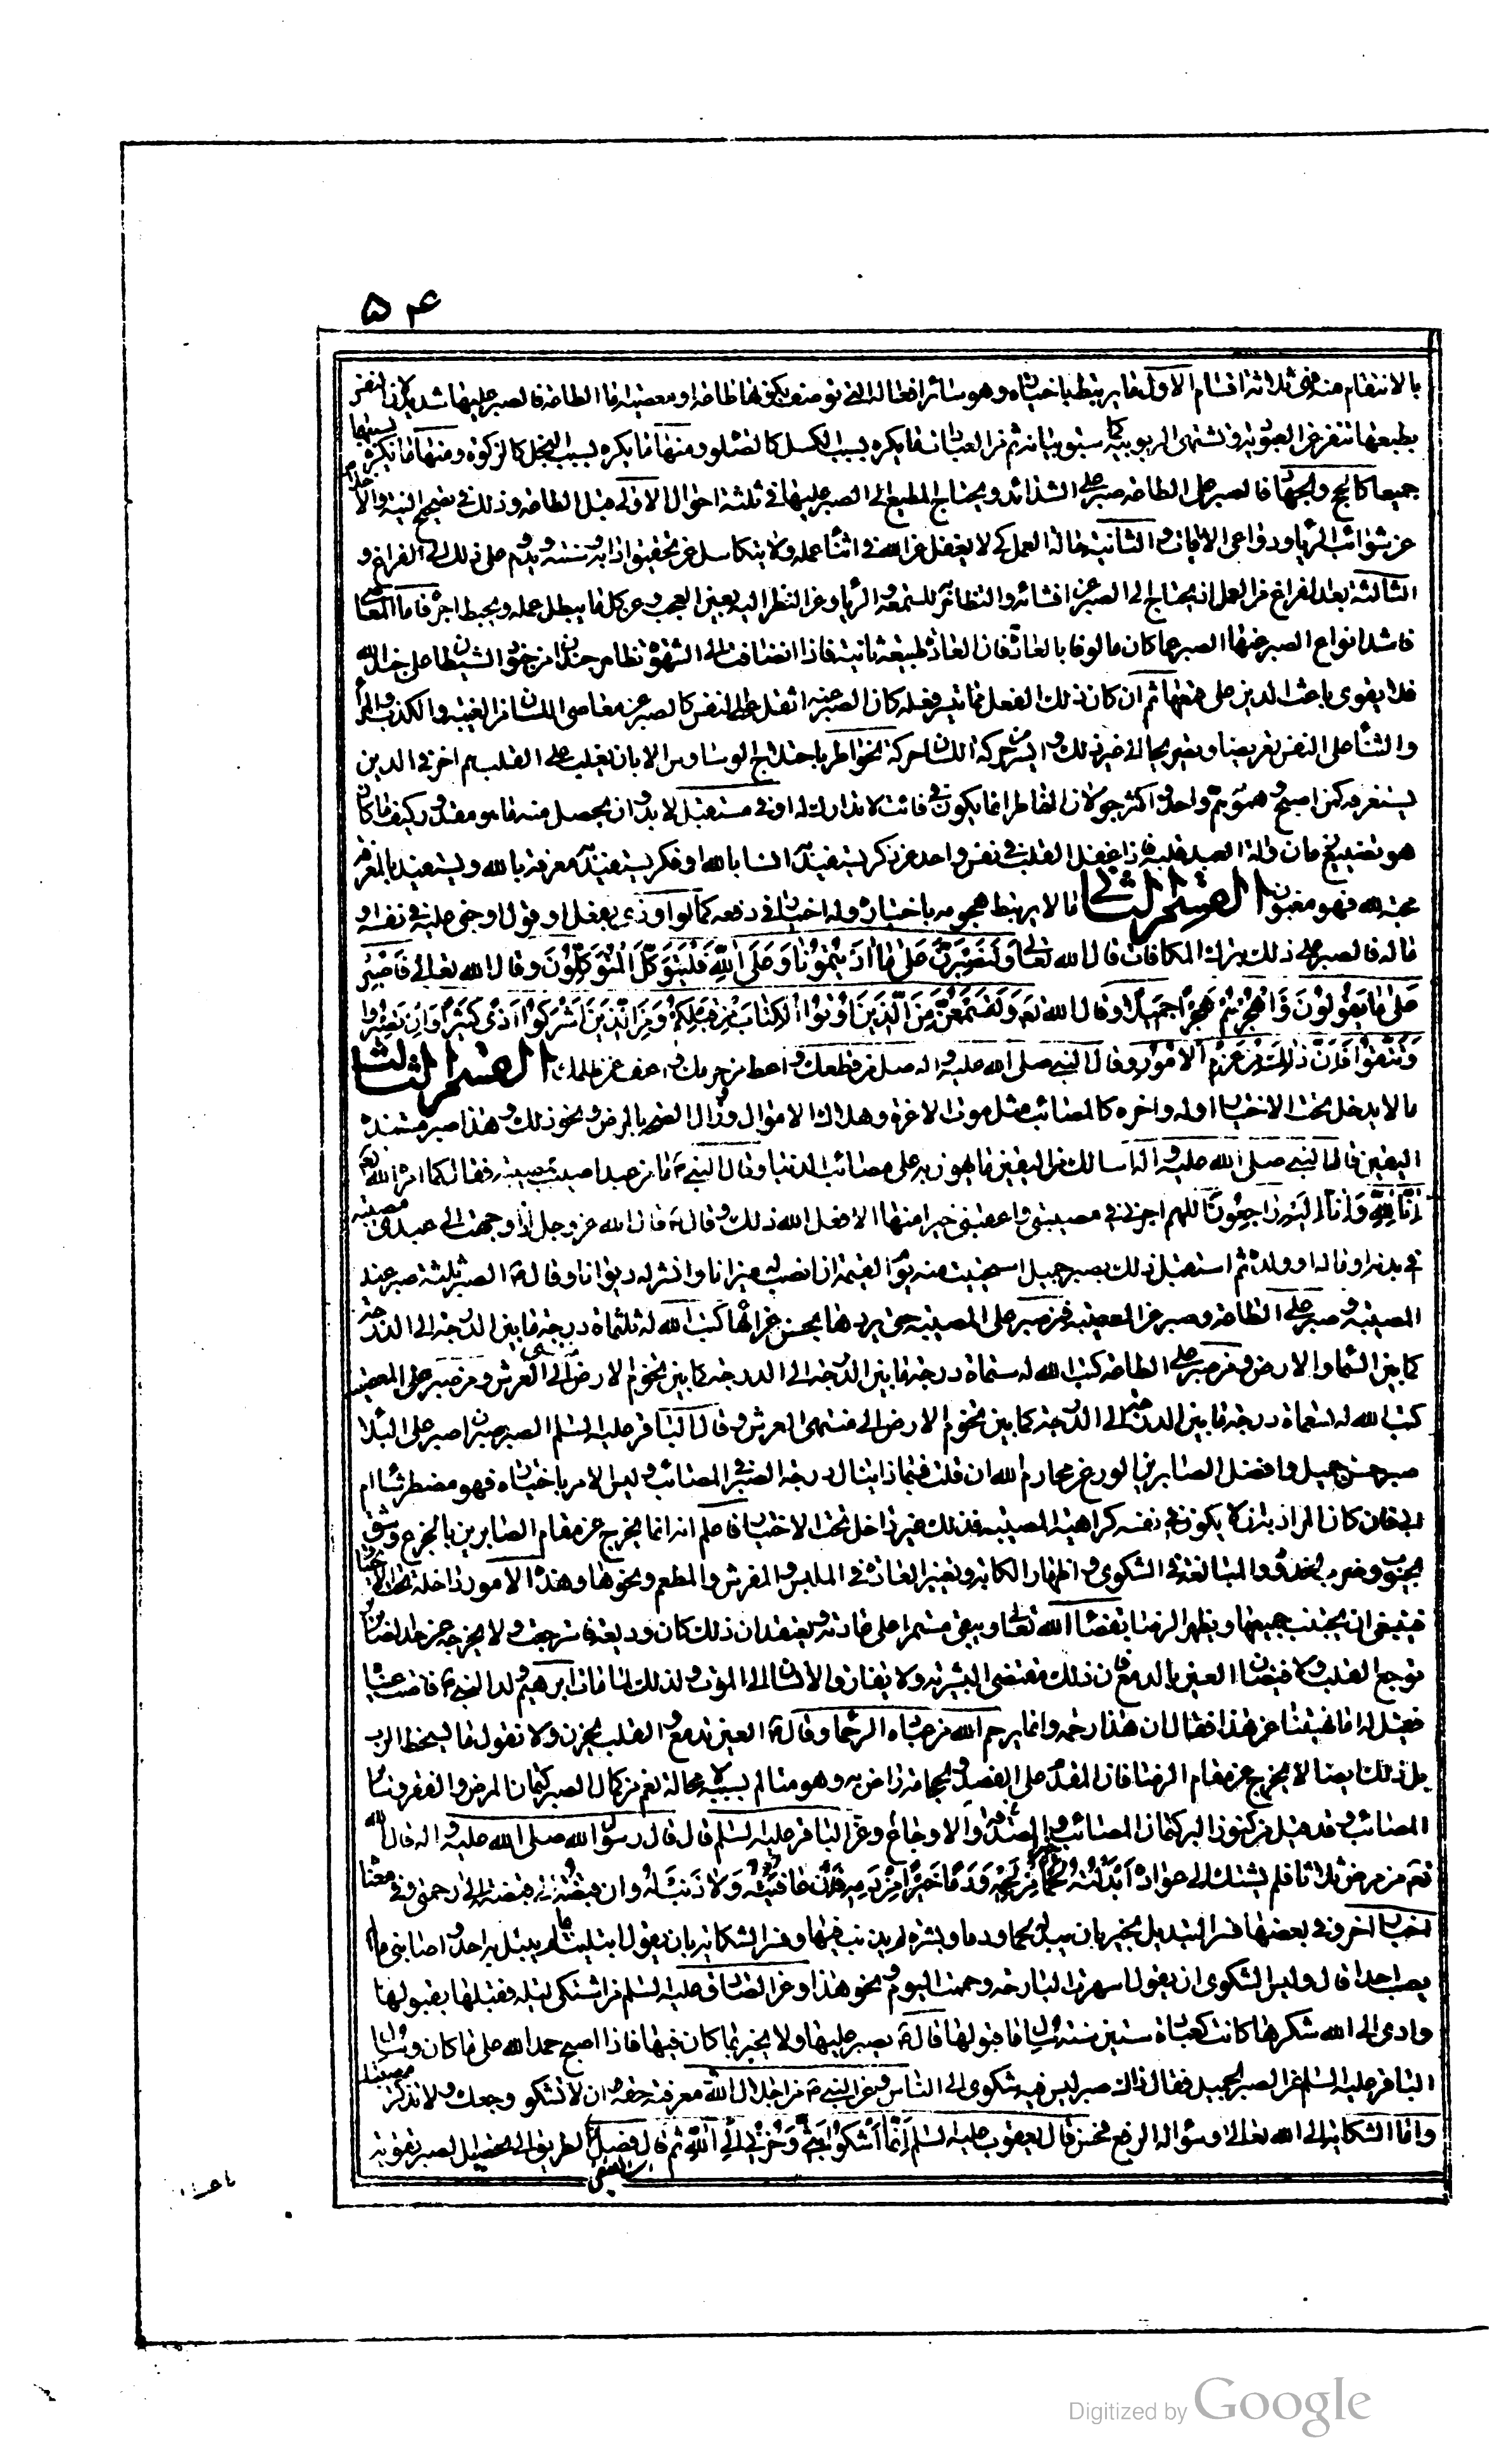 ۵۴
بالانتقام منه فهى ثلاثة اقسام الاول ما يرتبط باختياره وهو سائر افعاله التى توصف بكونها طاعة او معصية فاما الطاعة فالصبر عليها شديد لان النفس
بطبعها تنفر عن العبودية وتشتهى الربوبية كما سيتوبيانه ثم من العبادات ما يكره بسبب الكسل كالصلوة ومنها ما يكره بسبب البخل كالزكوة ومنها ما يكره بسببهما
جميعا كالحج والجهاد فالصبر على الطاعة صبر على الشدائد ويحتاج المطيع الى الصبر عليها فى ثلثة احوال الاولى قبل الطاعة وذلك فى تصحيح النية والاخلاص
عن شوائب الرياء ودواعى الافات والثانية حالة العمل كى لا يغفل عن الله فى اثناء عمله ولا يتكاسل عن تحقيق ادابه وسننه ويدوم على ذلك الى الفراغ و
الثالثة بعد الفراغ من العمل اذ يحتاج الى الصبر عن افشائه والتظاهر للسمعة والرياء وعن النظر اليه بعين العجب وعن كل ما يبطل عمله ويحبط اجره فاما المعاصى
فاشد انواع الصبر عنها الصبر عما كان مالوفا بالعادة فان العادة طبيعة ثانية فاذا انضافت الى الشهوة تظاهر جندان من جنود الشيطان على جند الله
فلا يقوى باعث الدين على قمعها ثم ان كان ذلك الفعل مما تيسر فعله كان الصبر عنه اثقل على النفس كالصبر عن معاصى اللسان من الغيبة والكذب والمراء
والثناء على النفس تعريضا وتصريحا الى غير ذلك وايسر من حركة اللسان حركة الخواطر باختلاج الوساوس الا بان يغلب على القلب هم اخر فى الدين
يستغرقه كمن اصبح وهمومه هم واحد واكثر جولان الخاطر انما يكون فى فائت لا تدارك له او فى مستقبل لا بد وان يحصل منه ما هو مقدر وكيف ما كان
هو تضييع زمان والة العبد قلبه فاذا غفل القلب فى نفس واحد عن ذكر يستفيد به انسا بالله او فكر يستفيد به معرفة بالله ويستفيد بالمعرفة
محبة الله فهو مغبون القسم الثانى ما لا يرتبط هجومه باختياره وله اختيار فى دفعه كما لو اوذى بفعل او قول او جنى عليه فى نفسه او
ماله فالصبر على ذلك بترك المكافات قال الله تعالى وَلَنَصْبِرَنَّ عَلَى مَا اٰذَيْتُمُونَا وَعَلَى اللّٰهِ فَلْيَتَوَكَّلِ الْمُتَوَكِّلُونَ وقال الله تعالى فَاصْبِرْ
عَلَى مَا يَقُولُونَ وَاهْجُرْهُمْ هَجْرًا جَمِيلًا وقال الله تعم وَلَتَسْمَعُنَّ مِنَ الَّذِينَ اُوتُوا الْكِتَابَ مِنْ قَبْلِكُمْ وَمِنَ الَّذِينَ اَشْرَكُوا اَذًى كَثِيرًا وَاِنْ تَصْبِرُوا
وَتَتَّقُوا فَاِنَّ ذٰلِكَ مِنْ عَزْمِ الْاُمُورِ وقال النبى صلى الله عليه واله صل من قطعك واعط من حرمك واعف عمن ظلمك القسم الثالث
ما لا يدخل تحت الاختيار اوله واخره كالمصائب مثل موت الاعزة وهلاك الاموال وزوال الصحة بالمرض ونحو ذلك وهذا صبر مستنده
اليقين قال النبى صلى الله عليه واله اسالك من اليقين ما يهون به على مصائب الدنيا وقال النبى ص ما من عبد اصيب بمصيبة فقال كما امره الله تعم
اِنَّا لِلّٰهِ وَاِنَّا اِلَيْهِ رَاجِعُونَ اللهم اجرنى فى مصيبتى واعقبنى خيرا منها الا فعل الله ذلك وقال ص قال الله عز وجل اذا وجهت الى عبدى مصيبة
فى بدنه او ماله او ولده ثم استقبل ذلك بصبر جميل استحييت منه يوم القيمة ان انصب له ميزانا وانشر له ديوانا وقال ص الصبر ثلثة صبر عند
المصيبة وصبر على الطاعة وصبر عن المعصية فمن صبر على المصيبة حتى يردها بحسن عزائها كتب الله له ثلثمائة درجة ما بين الدرجة الى الدرجة
كما بين السماء والارض ومن صبر على الطاعة كتب الله له ستمائة درجة ما بين الدرجة الى الدرجة كما بين تخوم الارض الى العرش ومن صبر على المعصية
كتب الله له تسعمائة درجة ما بين الدرجة الى الدرجة كما بين تخوم الارض الى منتهى العرش وقال الباقر عليه السلم الصبر صبران صبر على البلاء
صبر حسن جميل وافضل الصابرين الورع عن محارم الله ان قلت فبماذا ينال درجة الصبر فى المصائب وليس الامر باختياره فهو مضطر شاء ام
ابى فان كان المراد بان لا يكون فى نفسه كراهية المصيبة فذلك غير داخل تحت الاختيار فاعلم انه انما يخرج عن مقام الصابرين بالجزع وشق
الجيوب وضرب الخدود والمبالغة فى الشكوى واظهار الكابة وتغيير العادة فى الملبس والمفرش والمطعم ونحوها وهذه الامور داخلة تحت الاختيار
فينبغى ان يجتنب جميعها ويظهر الرضا بقضاء الله تعالى ويبقى مستمرا على عادته ويعتقد ان ذلك كان وديعة فاسترجعت ولا يخرجه عن حد الصابرين
توجع القلب ولا فيضان العين بالدمع فان ذلك مقتضى البشرية ولا يفارق الانسان الى الموت ولذلك لما مات ابرهيم ولد النبى ص فاضت عيناه
فقيل له اما نهيتنا عن هذا فقال ان هذا رحمة وانما يرحم الله من عباده الرحماء وقال ص العين تدمع والقلب يحزن ولا نقول ما يسخط الرب
بل ذلك ايضا لا يخرج عن مقام الرضا فان المقدم على الفصد والحجامة راض به وهو متالم بسببه لا محالة نعم من كمال الصبر كتمان المرض والفقر وسائر
المصائب وقد قيل من كنوز البر كتمان المصائب والصدقة والاوجاع وعن الباقر عليه السلم قال قال رسول الله صلى الله عليه واله قال الله
تعم من مرض ثلاثا فلم يشك الى عواده اَبْدَلْتُهُ لَحْمًا خَيْرًا مِنْ لَحْمِهِ وَدَمًا خَيْرًا مِنْ دَمِهِ فَاِنْ عَافَيْتُهُ عَافَيْتُهُ وَلَا ذَنْبَ لَهُ وان قبضته قبضته الى رحمتى وفى معناه
اخبار اخر وفى بعضها فسر التبديل بخير بان يبدله لحما ودما وبشرة لم يذنب فيها وفسر الشكاية بان يقول ابتليت بما لم يبتل به احد واصابنى ما لم
يصب احدا قال وليس الشكوى ان يقول سهرت البارحة وحممت اليوم ونحو هذا وعن الصادق عليه السلم من اشتكى ليلة فقبلها بقبولها
وادى الى الله شكرها كانت كعبادة ستين سنة سئل ما قبولها قال ص يصبر عليها ولا يخبر بما كان فيها فاذا اصبح حمد الله على ما كان وسئل
الباقر عليه السلم عن الصبر الجميل فقال ذاك صبر ليس فيه شكوى الى الناس وعن النبى ص من اجلال الله ومعرفة حقه ان لا تشكو وجعك ولا تذكر مصيبتك
واما الشكاية الى الله تعالى وسؤاله الرفع فحسن قال يعقوب عليه السلم اِنَّمَا اَشْكُو بَثِّى وَحُزْنِى اِلَى اللّٰهِ ثم قال فصل الطريق الى تحصيل الصبر تقوية
Digitized by Google